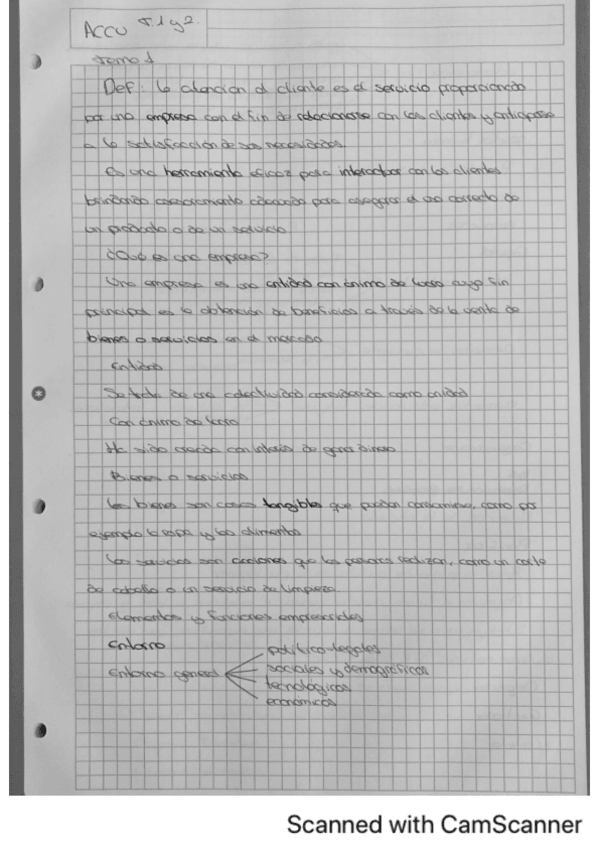 ACCU T.1 y 2.
Tema 1
Def: la atencion al cliente es el servicio proporcionado
por una empresa con el fin de relacionarse con los clientes y anticiparse
a la satisfacción de sus necesidades.
Es una herramienta eficaz para interactuar con los clientes
brindando asesoramiento adecuado para asegurar el uso correcto de
un producto o de un servicio.
¿Qué es una empresa?
Una empresa es una entidad con ánimo de lucro cuyo fin
principal es la obtención de beneficios a través de la venta de
bienes o servicios en el mercado
Entidad
Se trata de una colectividad considerada como unidad
Con ánimo de lucro
Ha sido creada con interés de ganar dinero
Bienes o servicios
Los bienes son cosas tangibles que pueden consumirse, como por
ejemplo la ropa y los alimentos
Los servicios son acciones que las personas realizan, como un corte
de cabello o un servicio de limpieza
Elementos y funciones empresariales
Entorno
Entorno general
político-legales
sociales y demográficos
tecnológicos
económicos
Scanned with CamScanner